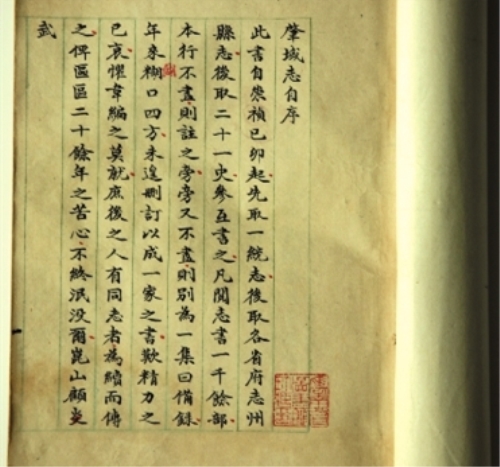 肇域志自序
此書自崇禎已卯起先取一統志後取各省府志州
縣志後取二十一史參互書之凡閱志書一千餘部
本行不盡則註之旁旁又不盡則別為一集曰備錄
年來糊口四方未遑刪訂以成一家之書歎精力之
已衰懼韋編之莫就庶後之人有同志者為續而傳
之俾區區二十餘年之苦心不終泯没爾崑山顧炎
武